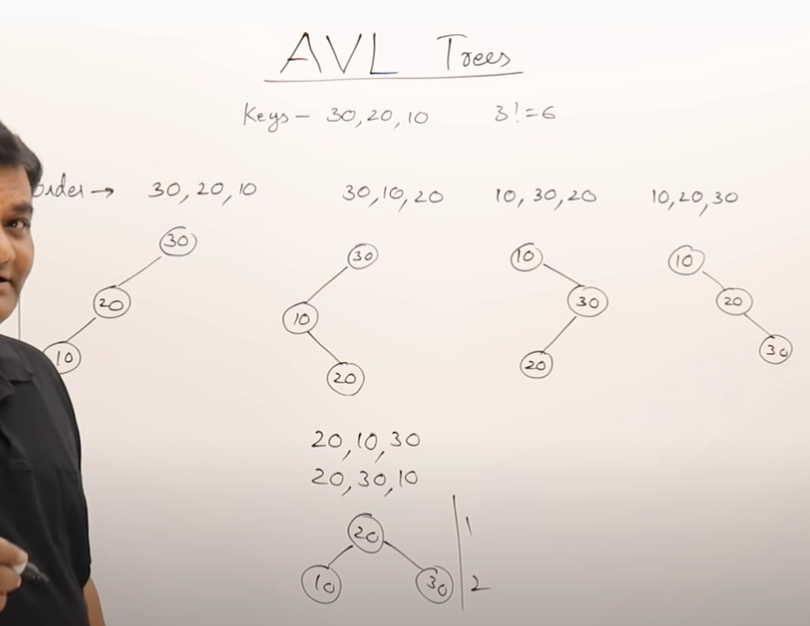 AVL Trees
Keys - 30,20,10 3!=6
order → 30,20,10 30,10,20 10,30,20 10,20,30
30 30 10 10
20 10 30 20
10 20 20 30
20,10,30
20,30,10
20 1
10 30 2